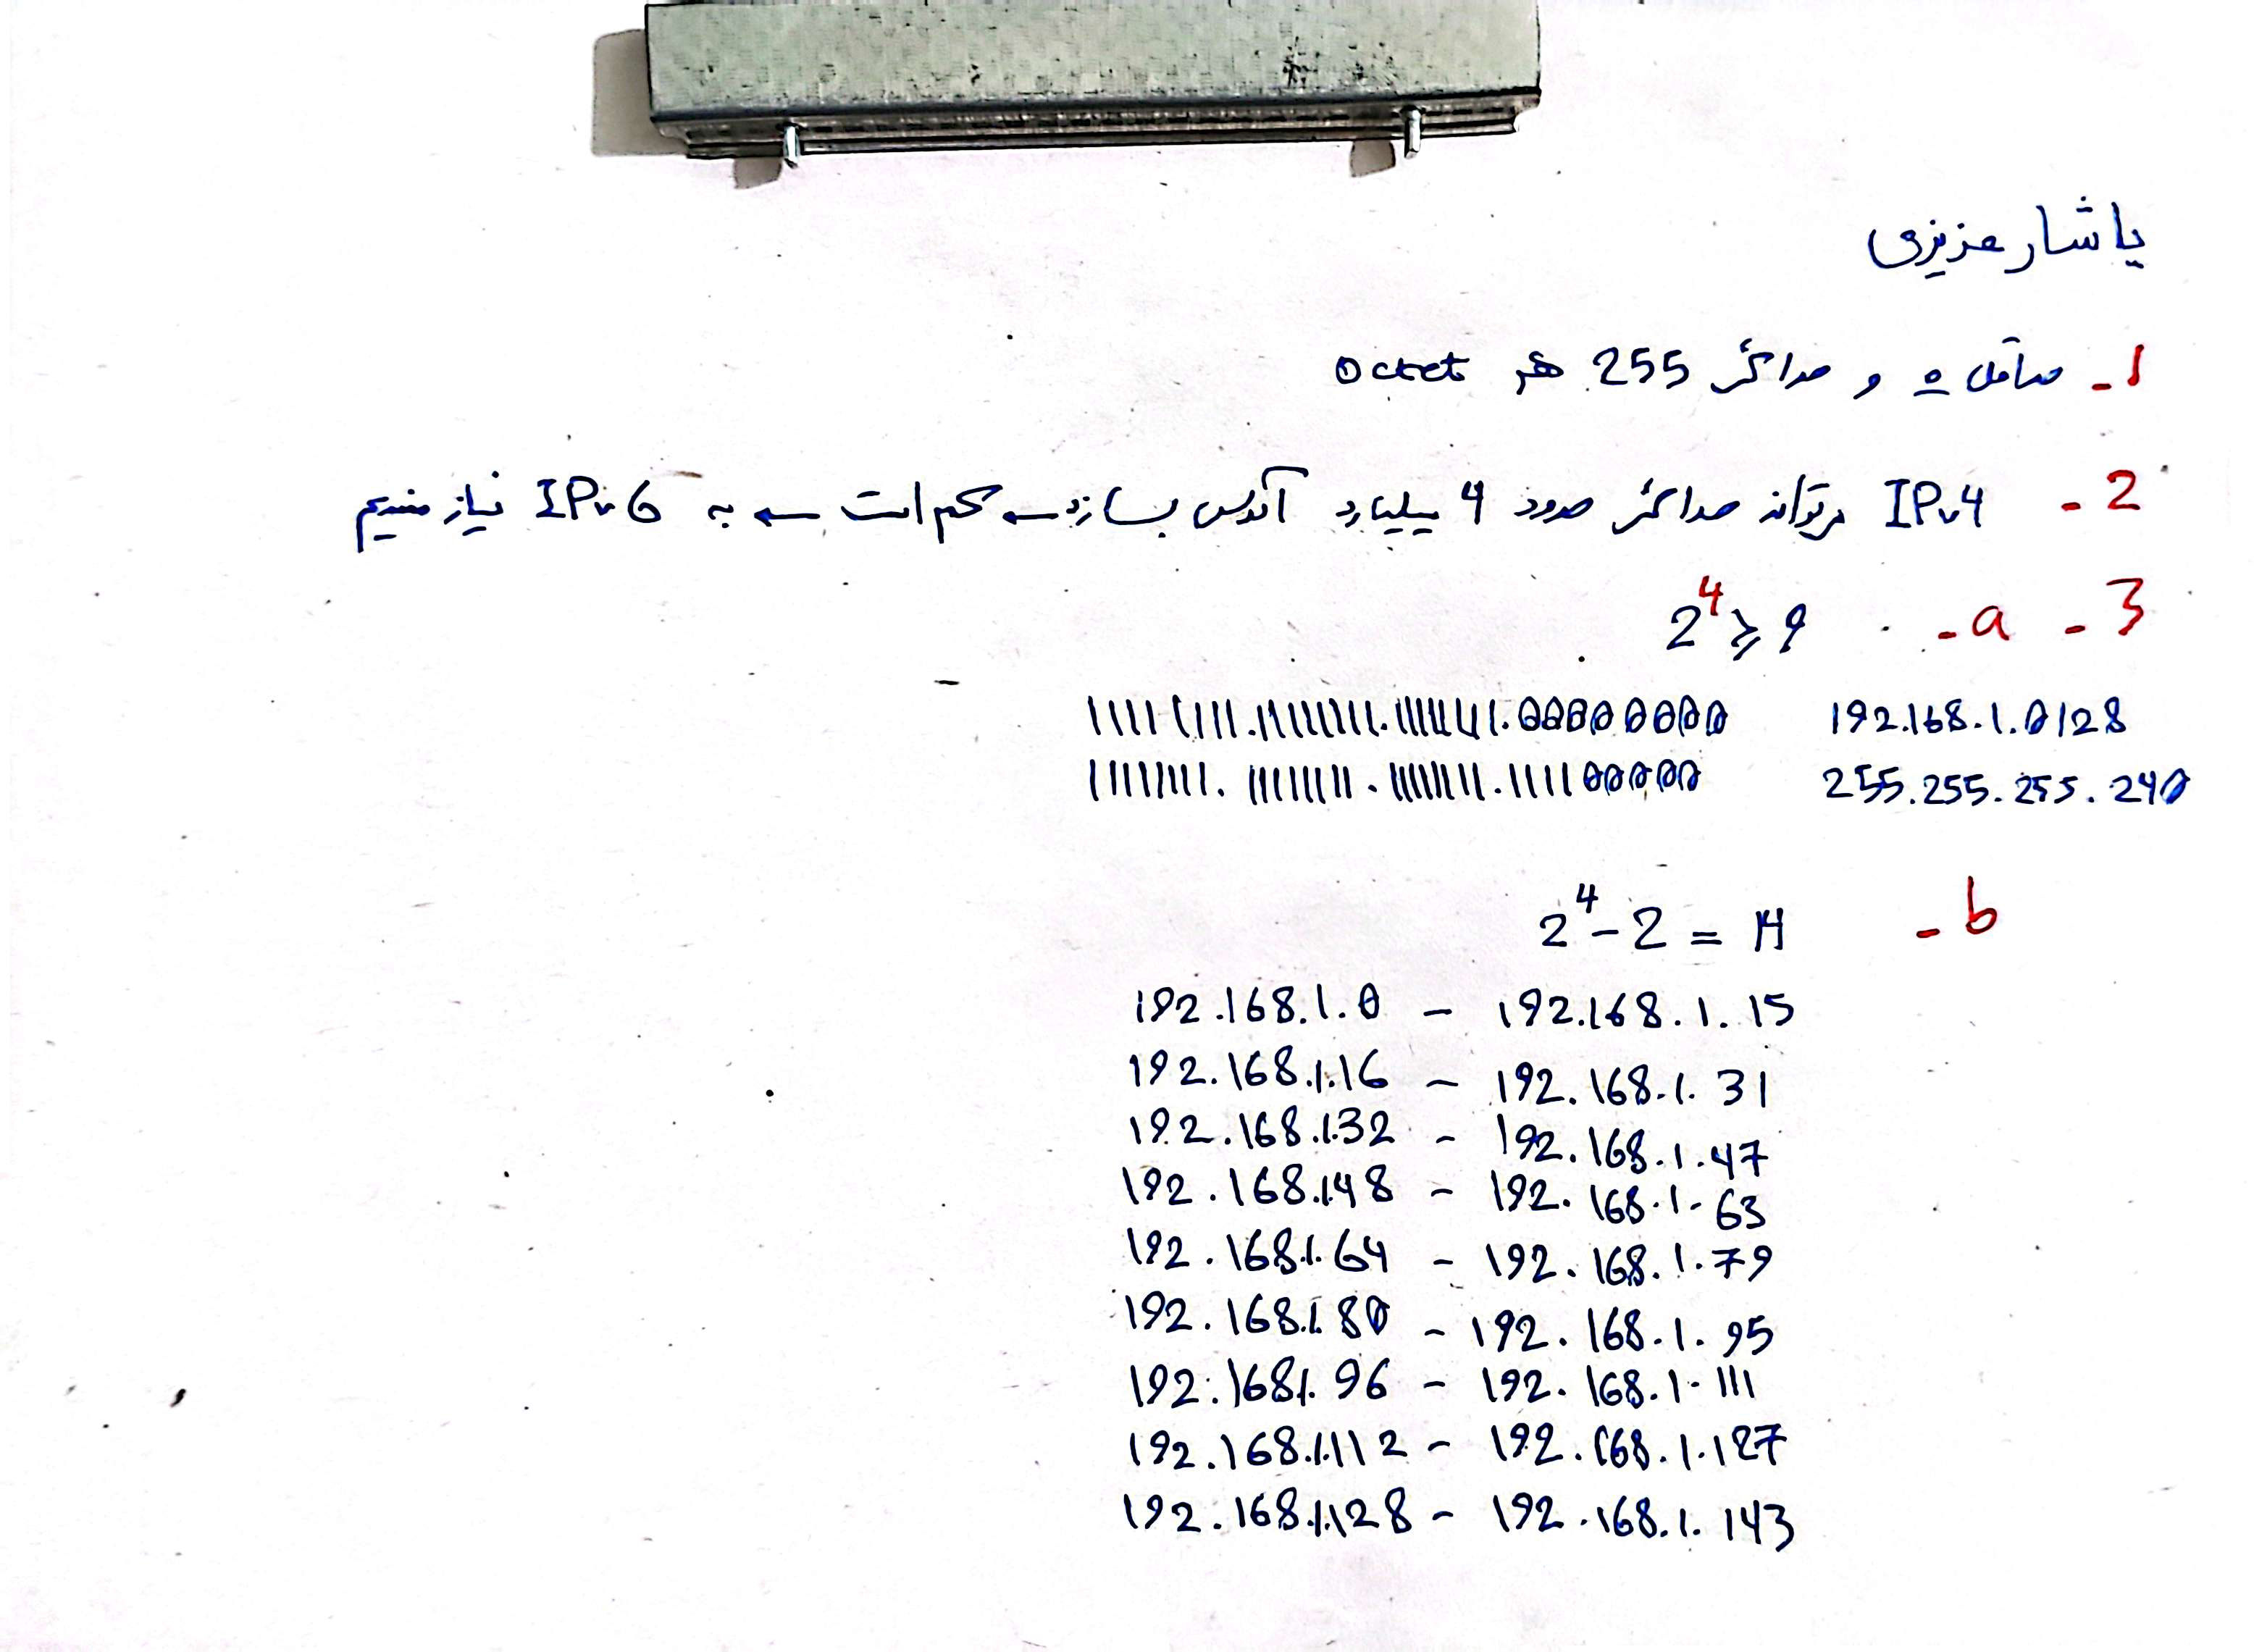 یاشار عزیزی
1- حداقل 0 و حداکثر 255 هر octet
2- IPv4 میتواند حداکثر حدود 4 میلیارد آدرس بسازد → کم است → به IPv6 نیازمندیم
3- a- 2^4 ≥ 9
11111111.11111111.11111111.00000000 192.168.1.0128
11111111.11111111.11111111.111100000 255.255.255.240
b- 2^4 - 2 = 14
192.168.1.0 - 192.168.1.15
192.168.1.16 - 192.168.1.31
192.168.1.32 - 192.168.1.47
192.168.1.48 - 192.168.1.63
192.168.1.64 - 192.168.1.79
192.168.1.80 - 192.168.1.95
192.168.1.96 - 192.168.1.111
192.168.1.112 - 192.168.1.127
192.168.1.128 - 192.168.1.143